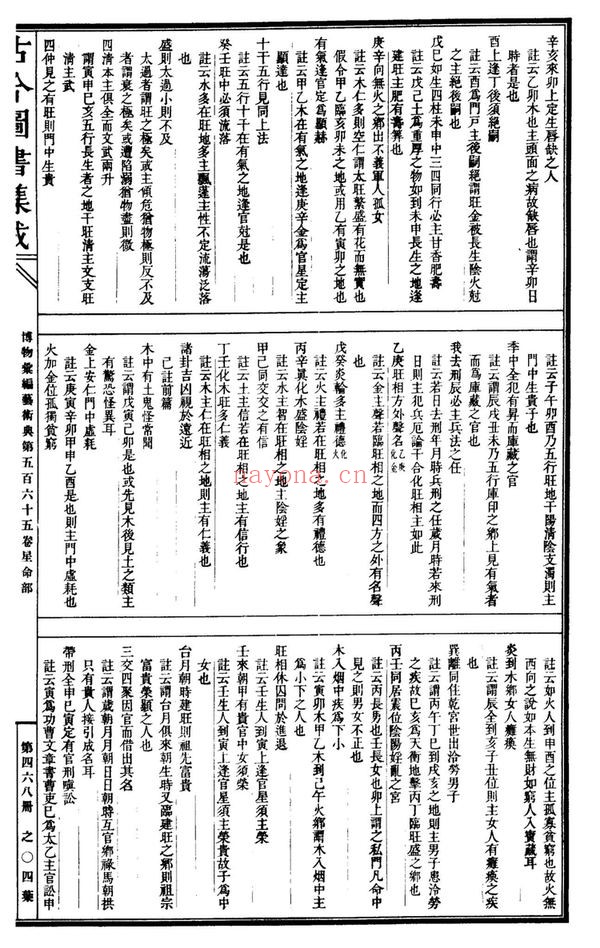 辛亥來卯上定生唇缺之人
註云乙卯木也主頭面之病故缺唇也謂辛卯日
時者是也
酉上逢丁後須絕嗣
註云酉爲門戸主後嗣絕謂旺金被長生陰火尅
之主絕後嗣也
戊巳如生四柱未申中三四同行必主甘香肥壽
註云戊己土爲重厚之物如到未申長生之地逢
建旺主肥有壽算也
庚辛向無火之鄉出不義軍人孤女
註云木仁多則空仁謂太旺繁盛有花而無實也
假令甲乙臨亥卯未之地或用乙有寅卯之地也
有氣逢官定爲顯赫
註云甲乙木在有氣之地逢庚辛金爲官星定主
顯達也
十干五行見同上法
註云五行十干在有氣之地逢官尅是也
癸壬旺中必須流落
註云水多在旺地多主飄蓬主性不定流蕩泛落
盛則太過小則不及
太過者謂旺之極矣或主傾危猶物極則反不及
者謂衰之極矣或遭陷溺猶物盡則微
四清本主俱全而文武兩升
謂寅申巳亥五行長生者之地干旺清主文支旺
清主武
四仲見之有旺則門中生貴
註云子午卯酉乃五行旺地干陽清陰支濁則主
門中生貴子也
季中全犯有昇而庫藏之官
註云謂辰戌丑未乃五行庫印之鄉上見有氣者
而爲庫藏之官也
我去刑辰必主兵法之任
註云若日去刑年月時兵刑之任歲月時若來刑
日則主犯兵厄論干合化旺相主如此
乙庚旺相方外聲名乙庚化金
註云金主聲若臨旺相之地而四方之外有名聲
戊癸炎輪多主禮德化火
註云火主禮若在旺相之地多有禮德也
丙辛異化水盛陰婬
註云水主智在旺相之地主陰婬之象
甲己同交交之有信
註云土主信若在旺相之地主有信行也
丁壬化木旺多仁義
註云木主仁在旺相之地則主有仁義也
諸卦吉凶視於遠近
己註前篇
木中有土鬼怪常聞
註云謂戊寅己卯是也或先見木後見土之類主
有驚恐怪異耳
金上安仁門中虛耗
註云庚寅辛卯甲申乙酉是也則主門中虛耗也
火加金位孤獨貧窮
註云如火人到申酉之位主孤寡貧窮也故火無
西向之說如本生無財如窮人入寶藏耳
炎到水鄉女人癱瘓
註云謂辰全到亥子丑位則主女人有癱瘓之疾
也
巽離同住乾宮世出洽勞男子
註云謂丙午丁巳到戌亥之地則主男子患洽勞
之疾故巳亥爲天衡地擊丙丁臨旺盛之鄉也
丙壬同居震位陰陽婬亂之宮
註云丙長男也壬長女也卯上謂之私門凡命中
見之則男女不正也
木入烟中疾爲下小
註云寅卯木甲乙木到己午火鄉謂木入烟中主
爲小下之人也
旺相休囚問於進退
註云壬生人到寅上逢官星須主榮
壬來朝甲有貴官中女須榮
註云壬生人到寅上逢官星須主榮貴故子爲中
女也
台月朝時建旺則祖先富貴
註云謂台月俱來朝生時又臨建旺之鄉則祖宗
富貴榮顯之人也
三交四聚因官而借出其名
註云謂歲朝月月朝日日朝時互官鄉祿馬朝拱
只有貴人接引成名耳
帶刑全申巳寅定有官刑嗔訟
註云寅爲功曹文章書曹吏巳爲太乙主官訟申
古今圖書集成
博物彙編藝術典第五百六十五卷星命部
第四六八冊 之〇四葉
nayona.cn